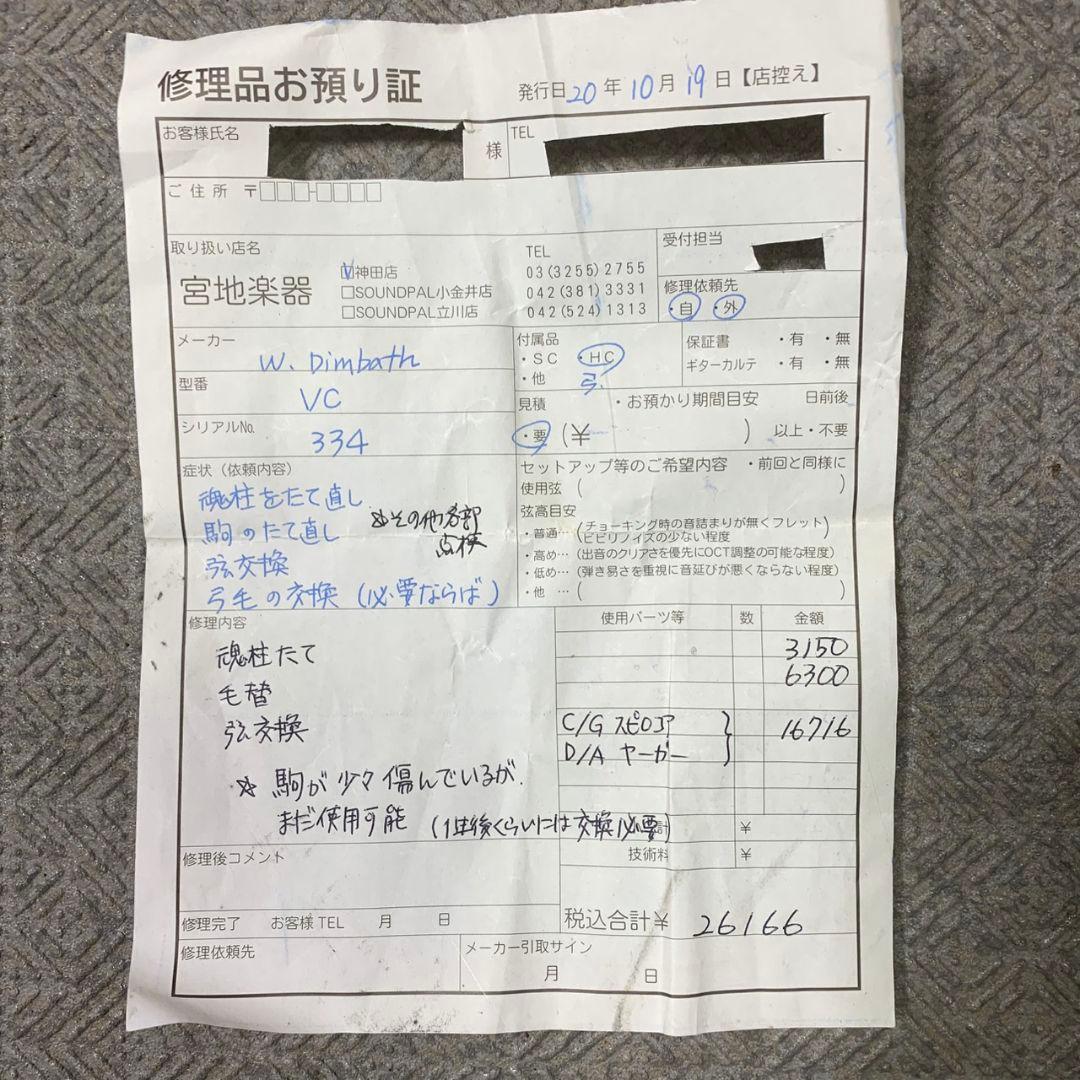 修理品お預り証
発行日 20 年 10 月 19 日【店控え】
お客様氏名 様 TEL
ご住所 〒□□□-□□□□
取り扱い店名 TEL 受付担当
宮地楽器
☑神田店 03(3255)2755
□SOUNDPAL小金井店 042(381)3331
□SOUNDPAL立川店 042(524)1313
修理依頼先
・自 ・外
メーカー W. Dimbath
付属品
・SC ・HC
・他 弓
保証書 ・有 ・無
ギターカルテ ・有 ・無
型番 VC
見積 ・お預かり期間目安 日前後
・要 (¥ ) 以上・不要
シリアルNo. 334
症状（依頼内容）
魂柱をたて直し
駒のたて直し
弦交換
弓毛の交換（必要ならば）
☆その他各部
点検
セットアップ等のご希望内容 ・前回と同様に
使用弦 ( )
弦高目安
・普通…(チョーキング時の音詰まりが無くフレット)
ビビリノイズの少ない程度
・高め…(出音のクリアさを優先にOCT調整の可能な程度)
・低め…(弾き易さを重視に音延びが悪くならない程度)
・他 …( )
修理内容
魂柱たて
毛替
弦交換
☆ 駒が少々傷んでいるが.
まだ使用可能 （1年後くらいには交換必要）
使用パーツ等 数 金額
3150
6300
C/G スピロコア } 16716
D/A ヤーガー
計 ¥
技術料 ¥
修理後コメント
修理完了 お客様TEL 月 日
税込合計¥ 26166
修理依頼先
メーカー引取サイン
月 日